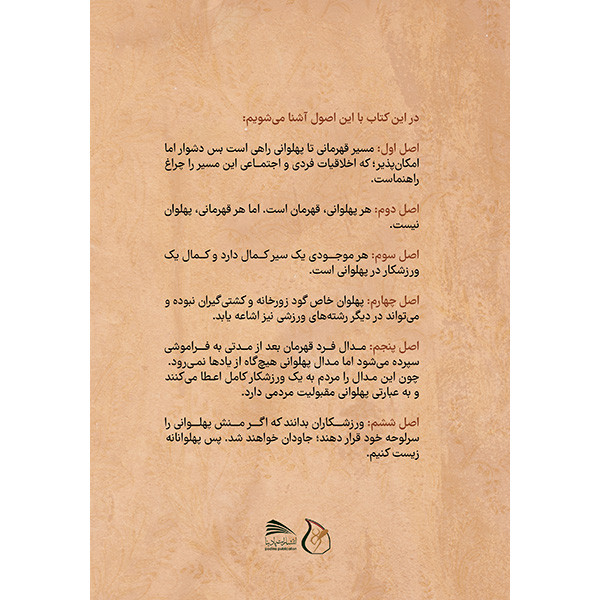 در این کتاب با این اصول آشنا می‌شویم:
اصل اول: مسیر قهرمانی تا پهلوانی راهی است بس دشوار اما
امکان‌پذیر؛ که اخلاقیات فردی و اجتماعی این مسیر را چراغ
راهنماست.
اصل دوم: هر پهلوانی، قهرمان است. اما هر قهرمانی، پهلوان
نیست.
اصل سوم: هر موجودی یک سیر کمال دارد و کمال یک
ورزشکار در پهلوانی است.
اصل چهارم: پهلوان خاص گود زورخانه و کشتی‌گیران نبوده و
می‌تواند در دیگر رشته‌های ورزشی نیز اشاعه یابد.
اصل پنجم: مدال فرد قهرمان بعد از مدتی به فراموشی
سپرده می‌شود اما مدال پهلوانی هیچ‌گاه از یادها نمی‌رود.
چون این مدال را مردم به یک ورزشکار کامل اعطا می‌کنند
و به عبارتی پهلوانی مقبولیت مردمی دارد.
اصل ششم: ورزشکاران بدانند که اگر منش پهلوانی را
سرلوحه خود قرار دهند؛ جاودان خواهند شد. پس پهلوانانه
زیست کنیم.